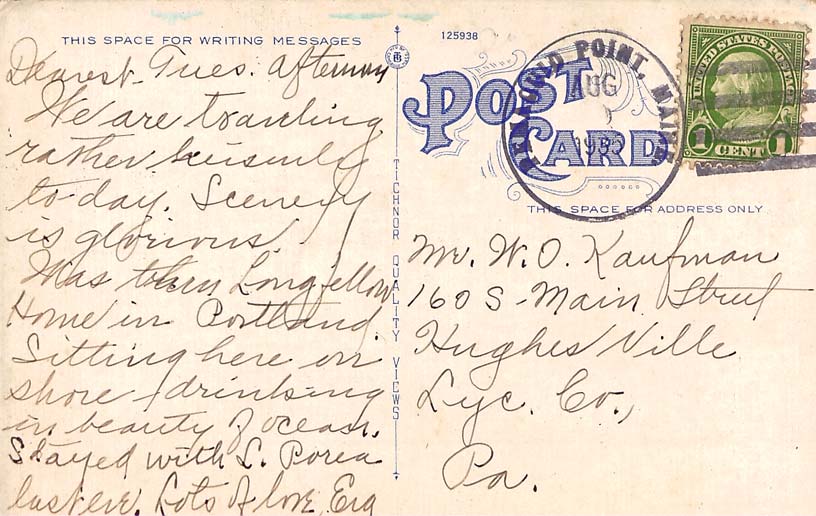 THIS SPACE FOR WRITING MESSAGES
Dearest- Tues. afternoon
We are traveling
rather leisurely
to-day. Scenery
is glorious.
Was thru Longfellow
Home in Portland.
Sitting here on
shore drinking
in beauty of ocean.
Stayed with S.
last eve. Lots of love,
TICHNOR QUALITY VIEWS
125938
POST
CARD
PEMAQUID POINT, MAINE
AUG
UNITED STATES POSTAGE
1 CENT 1
THIS SPACE FOR ADDRESS ONLY
Mr. W. O. Kaufman
160 S. Main Street
Hughes Ville
Lyc. Co.,
Pa.